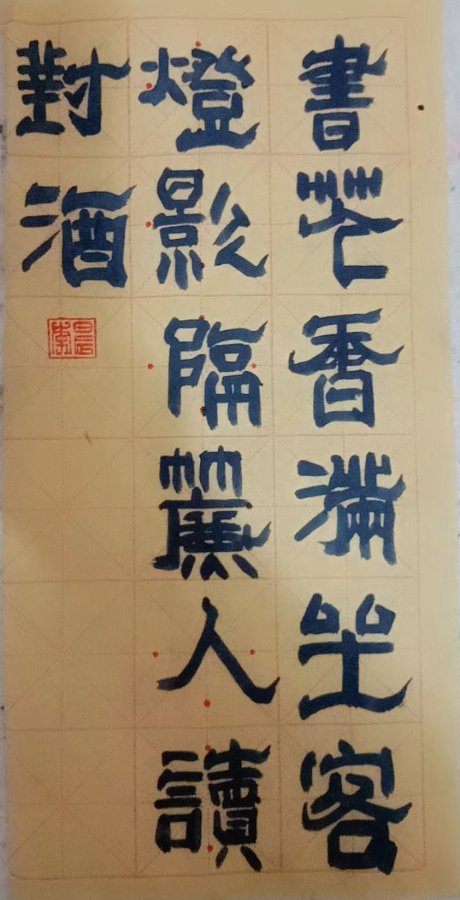 書花香滿坐客
燈影隔簾人讀
對酒